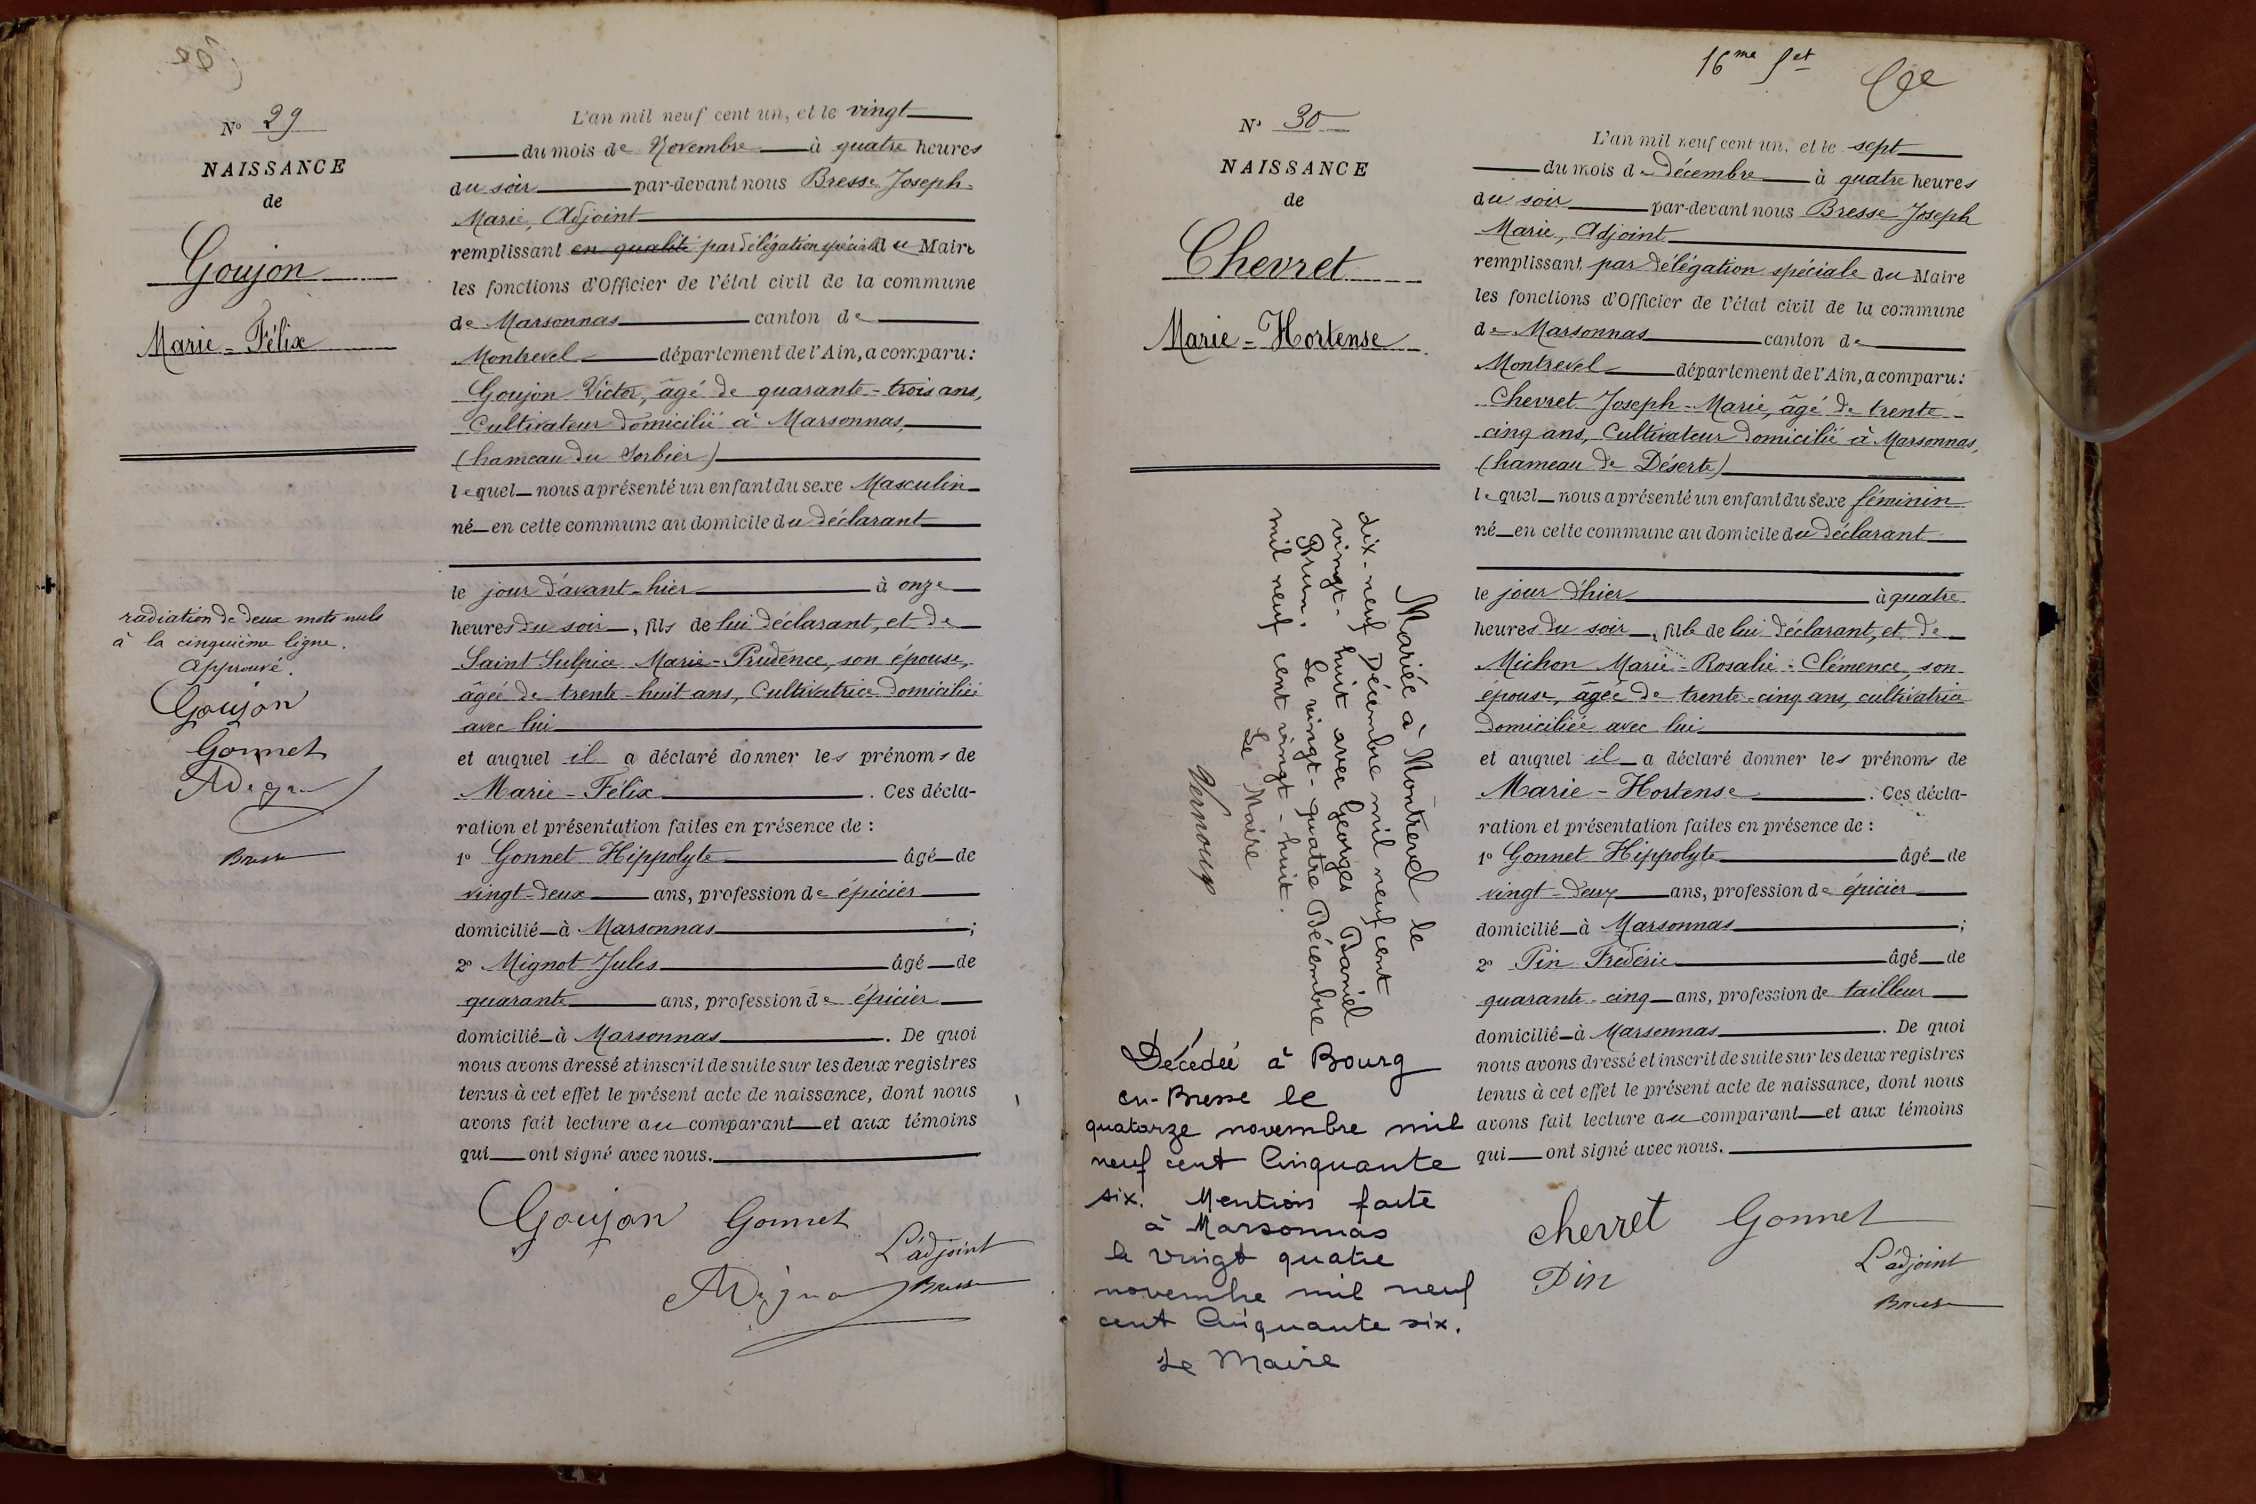 Nº 29
NAISSANCE
de
Goujon
Marie-Félix
radiation de deux mots nuls
à la cinquième ligne.
Approuvé.
Goujon
Gonnet
L'an mil neuf cent un, et le vingt
du mois de Novembre à quatre heures
du soir par-devant nous Bresse Joseph-
Marie, Adjoint
remplissant en qualité par délégation spéciale du Maire
les fonctions d'Officier de l'état civil de la commune
de Marsonnas canton de
Montrevel département de l'Ain, a comparu:
Goujon Victor, âgé de quarante-trois ans,
Cultivateur domicilié à Marsonnas,
(hameau du Sorbier)
lequel nous a présenté un enfant du sexe Masculin
né en cette commune au domicile du déclarant
le jour d'avant-hier à onze
heures du soir, fils de lui déclarant, et de
Saint Sulpice Marie-Prudence, son épouse,
âgée de trente-huit ans, Cultivatrice domiciliée
avec lui
et auquel il a déclaré donner les prénoms de
Marie-Félix. Ces décla-
ration et présentation faites en présence de :
1º Gonnet Hippolyte âgé de
vingt-deux ans, profession de épicier
domicilié à Marsonnas ;
2º Mignot Jules âgé de
quarante ans, profession de épicier
domicilié à Marsonnas. De quoi
nous avons dressé et inscrit de suite sur les deux registres
tenus à cet effet le présent acte de naissance, dont nous
avons fait lecture au comparant et aux témoins
qui ont signé avec nous.
Goujon Gonnet
L'adjoint
Bresse
16me
Nº 30
NAISSANCE
de
Chevret
Marie-Hortense
Mariée à Montrevel le
dix-neuf Décembre mil neuf cent
vingt-huit avec Georges Daniel
Brun. Le vingt-quatre Décembre
mil neuf cent vingt-huit.
Le Maire
Vernoux
Décédée à Bourg
en-Bresse le
quatorze novembre mil
neuf cent Cinquante
six. Mention faite
à Marsonnas
le vingt quatre
novembre mil neuf
cent Cinquante six.
Le Maire
L'an mil neuf cent un, et le sept
du mois de Décembre à quatre heures
du soir par-devant nous Bresse Joseph
Marie, Adjoint
remplissant par délégation spéciale du Maire
les fonctions d'Officier de l'état civil de la commune
de Marsonnas canton de
Montrevel département de l'Ain, a comparu:
Chevret Joseph-Marie, âgé de trente-
cinq ans, Cultivateur domicilié à Marsonnas,
(hameau de Déserte)
lequel nous a présenté un enfant du sexe féminin
né en cette commune au domicile du déclarant
le jour d'hier à quatre
heures du soir, fille de lui déclarant, et de
Michon Marie-Rosalie-Clémence, son
épouse, âgée de trente-cinq ans, cultivatrice
domiciliée avec lui
et auquel il a déclaré donner les prénoms de
Marie-Hortense. Ces décla-
ration et présentation faites en présence de :
1º Gonnet Hippolyte âgé de
vingt-deux ans, profession de épicier
domicilié à Marsonnas ;
2º Pin Frédéric âgé de
quarante-cinq ans, profession de tailleur
domicilié à Marsonnas. De quoi
nous avons dressé et inscrit de suite sur les deux registres
tenus à cet effet le présent acte de naissance, dont nous
avons fait lecture au comparant et aux témoins
qui ont signé avec nous.
Chevret Gonnet
L'adjoint
Pin
Bresse